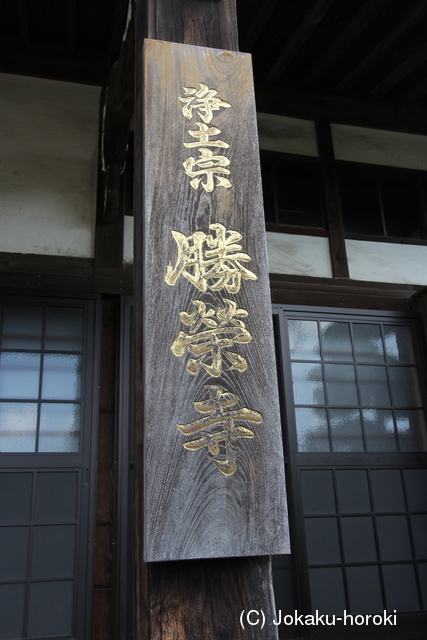 浄土宗
勝榮寺
(C) Jokaku-horoki